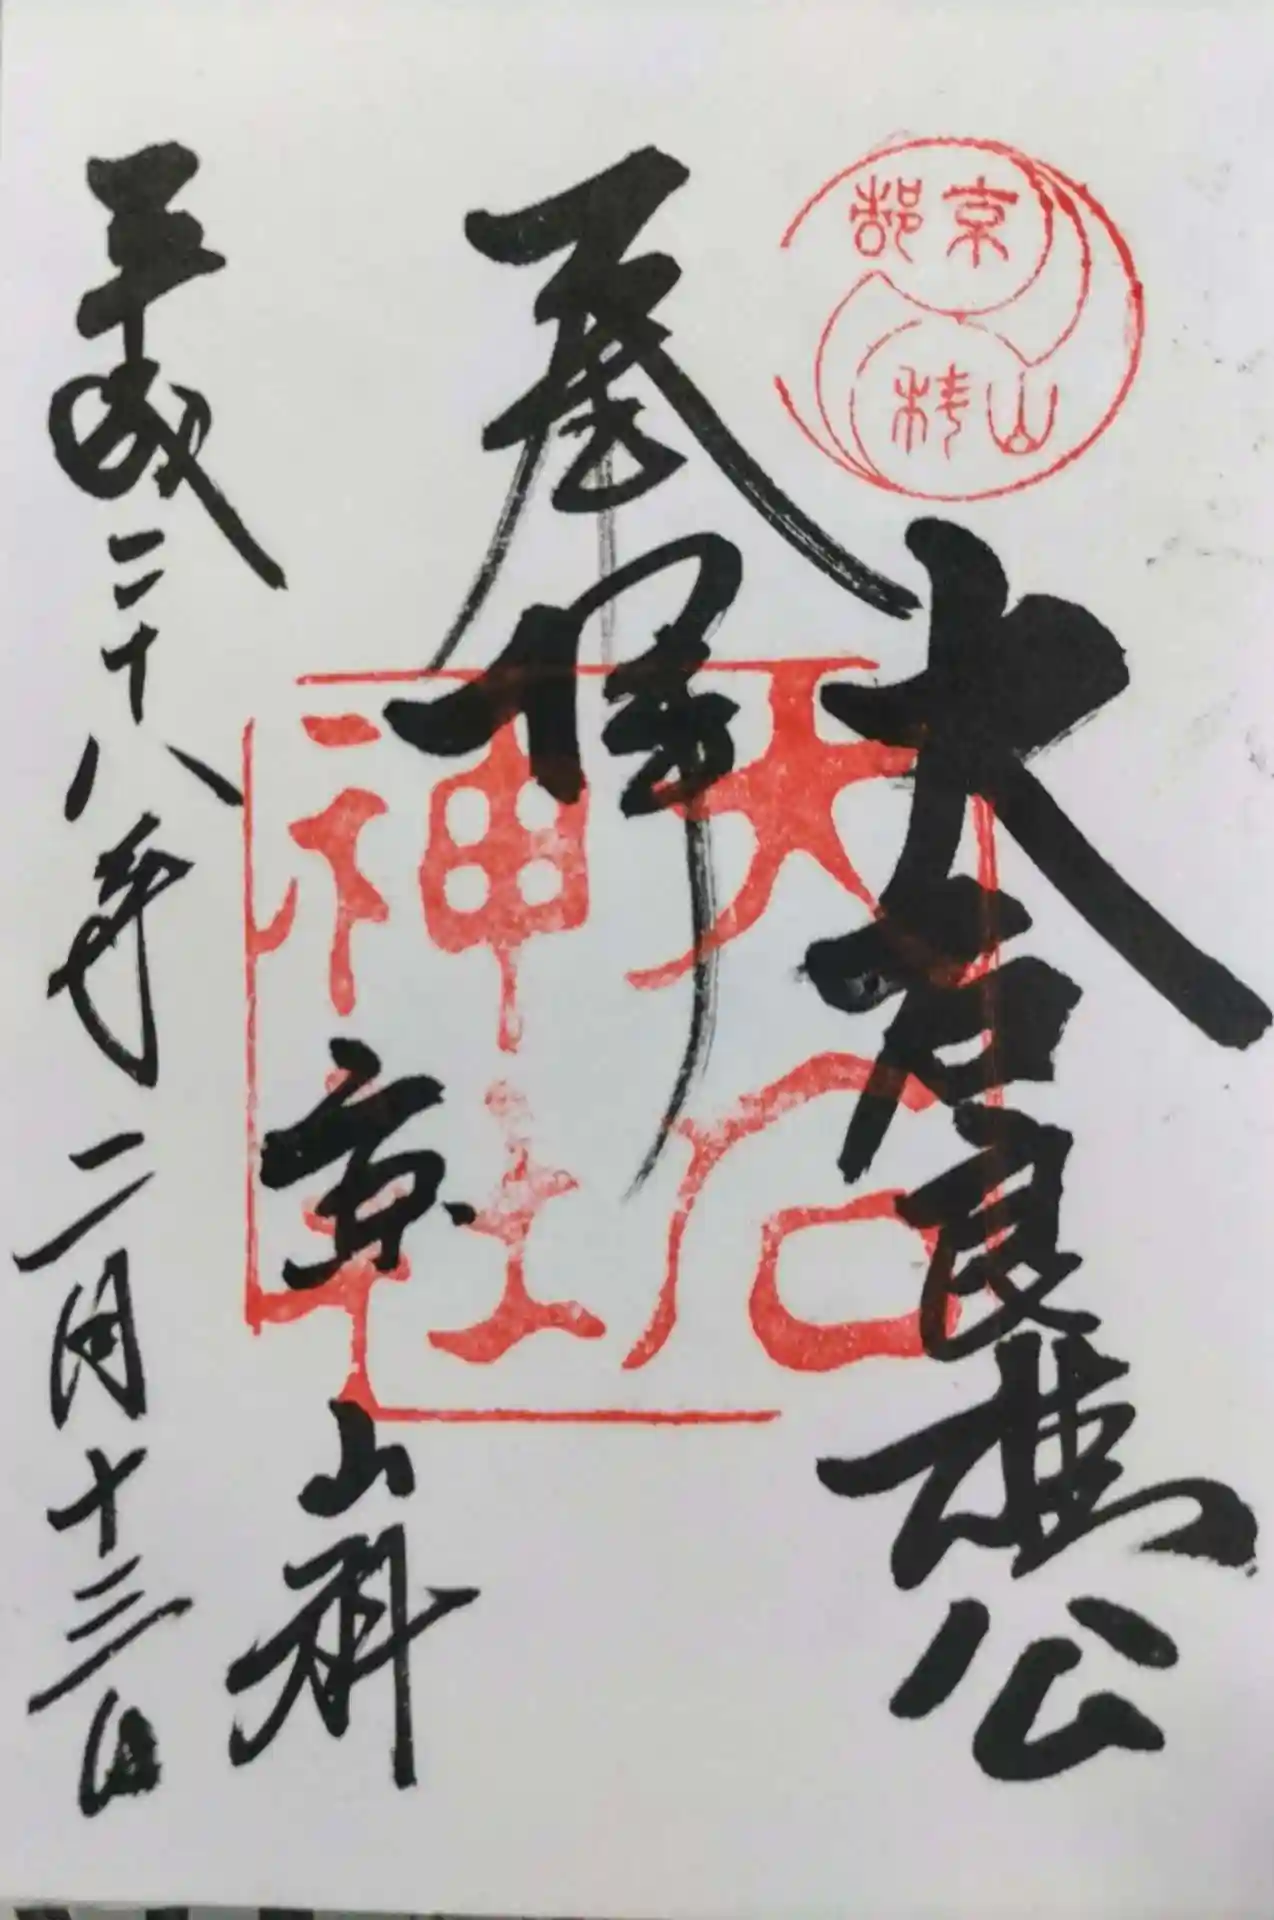 京都
山科
大石良雄公
奉拝
大石
神社
京 山科
平成二十八年二月十三日